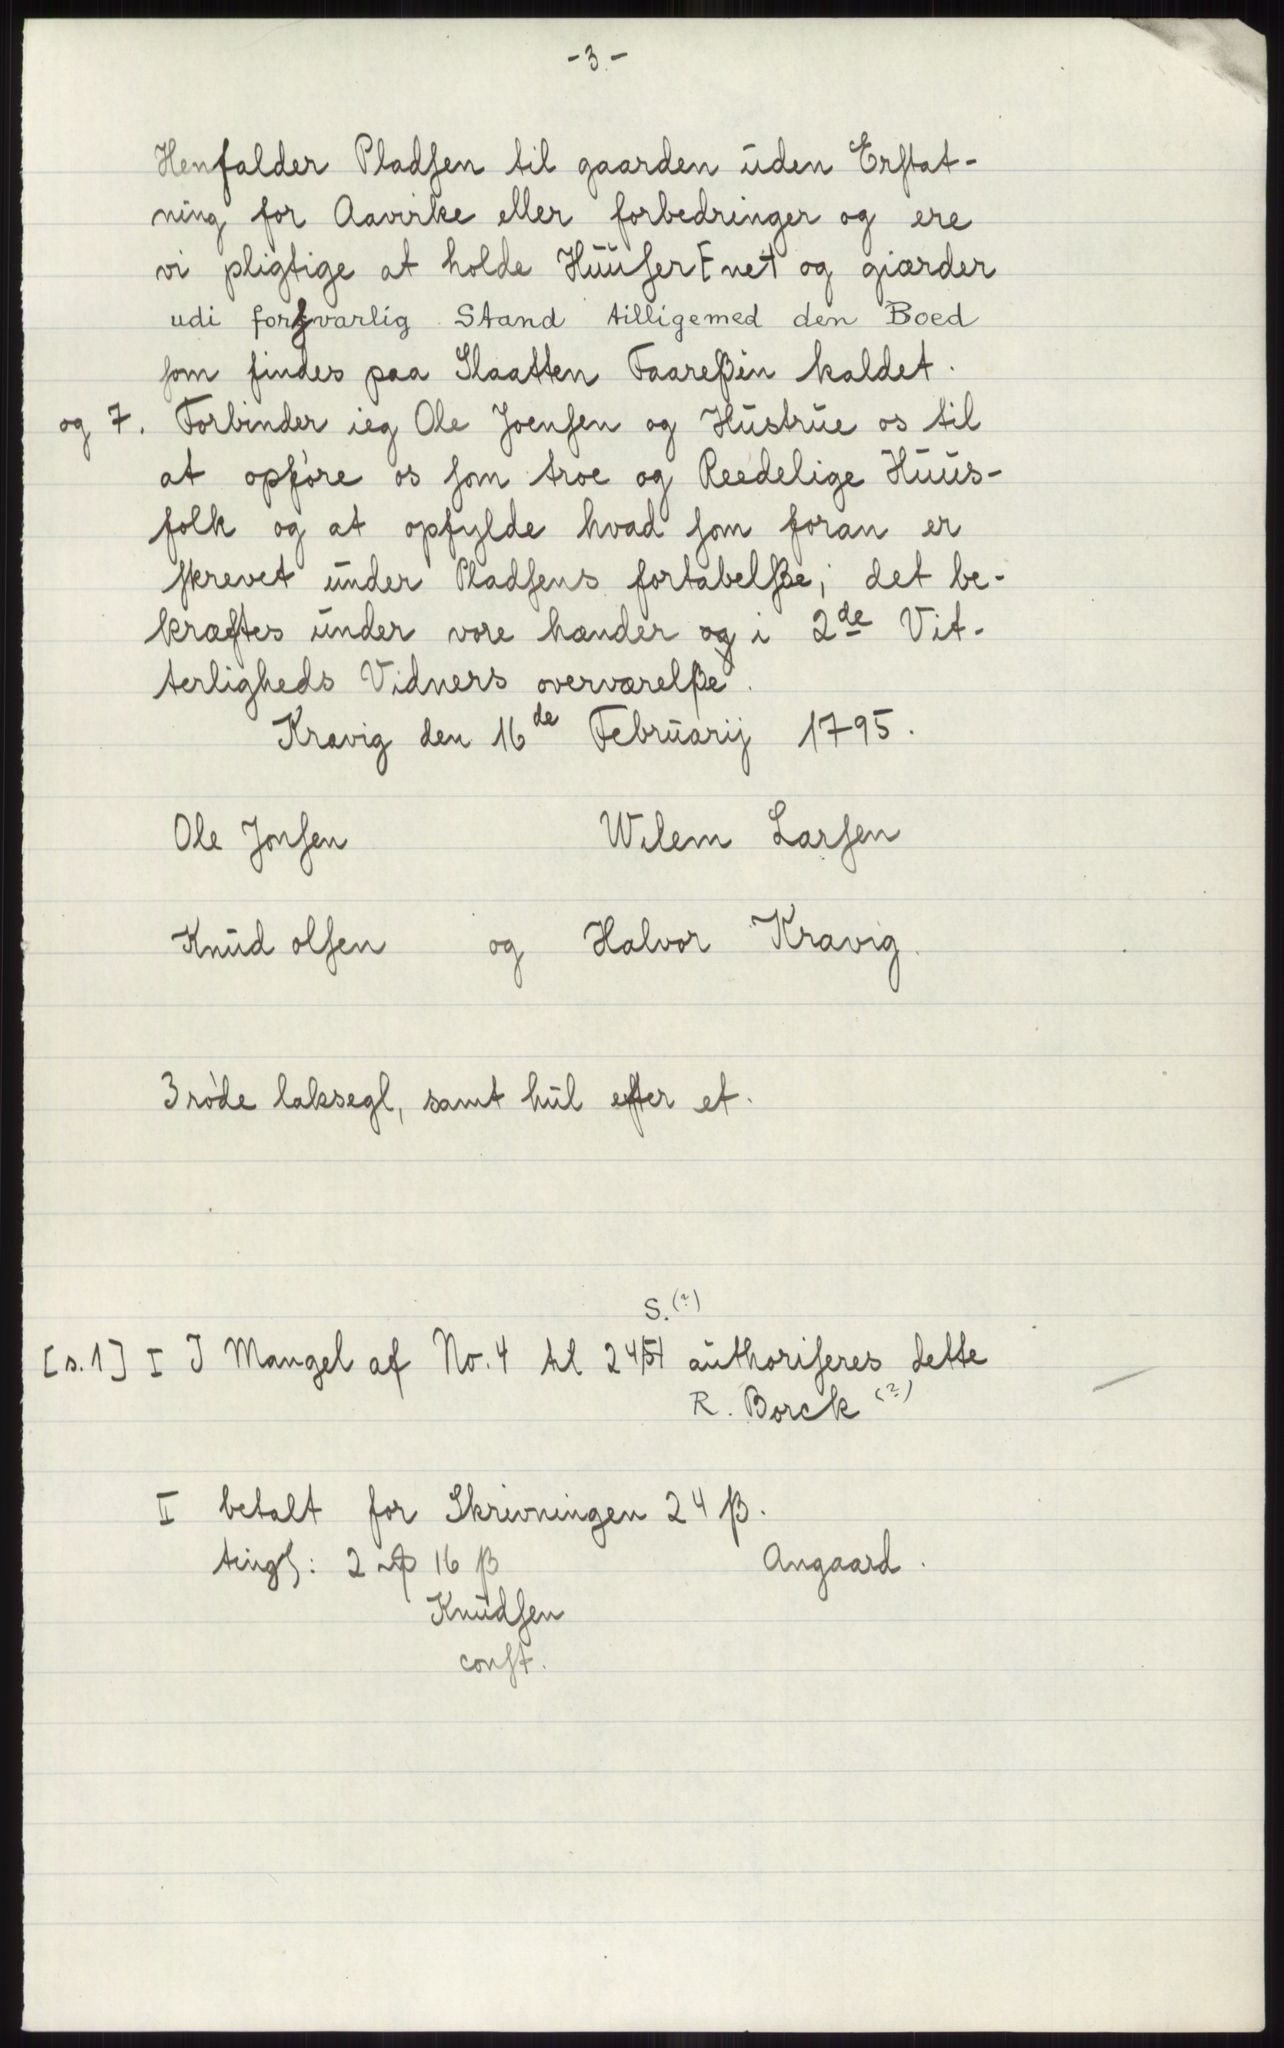 - 3 -
Henfalder Pladsen til gaarden uden Erstat-
ning for Aavirke eller forbedringer og ere
vi pligtige at holde Huuser[net og giærder
udi forsvarlig Stand tilligemed den Boed
som findes paa Slaatten Faareßen kaldet.
og 7. Forbinder ieg Ole Joensen og Hustrue os til
at opføre os som troe og Reedelige Huus-
folk og at opfylde hvad som foran er
skrevet under Pladsens fortabelsße; det be-
kræftes under vore hænder og i 2de Vit-
terligheds Vidners overværelße.
Kravig den 16de Februarij 1795.
Ole Jonsen Wilem Larsen
Knud olsen og Halvor Kravig.
3 røde laksegl, samt hul efter et.
S. (?)
[s. 1] I I Mangel af No. 4 til 24 authoriseres dette
R. Borck (?)
II betalt for Skrivningen 24 ß.
tingl: 2 16 ß Angaard.
Knudsen
const.